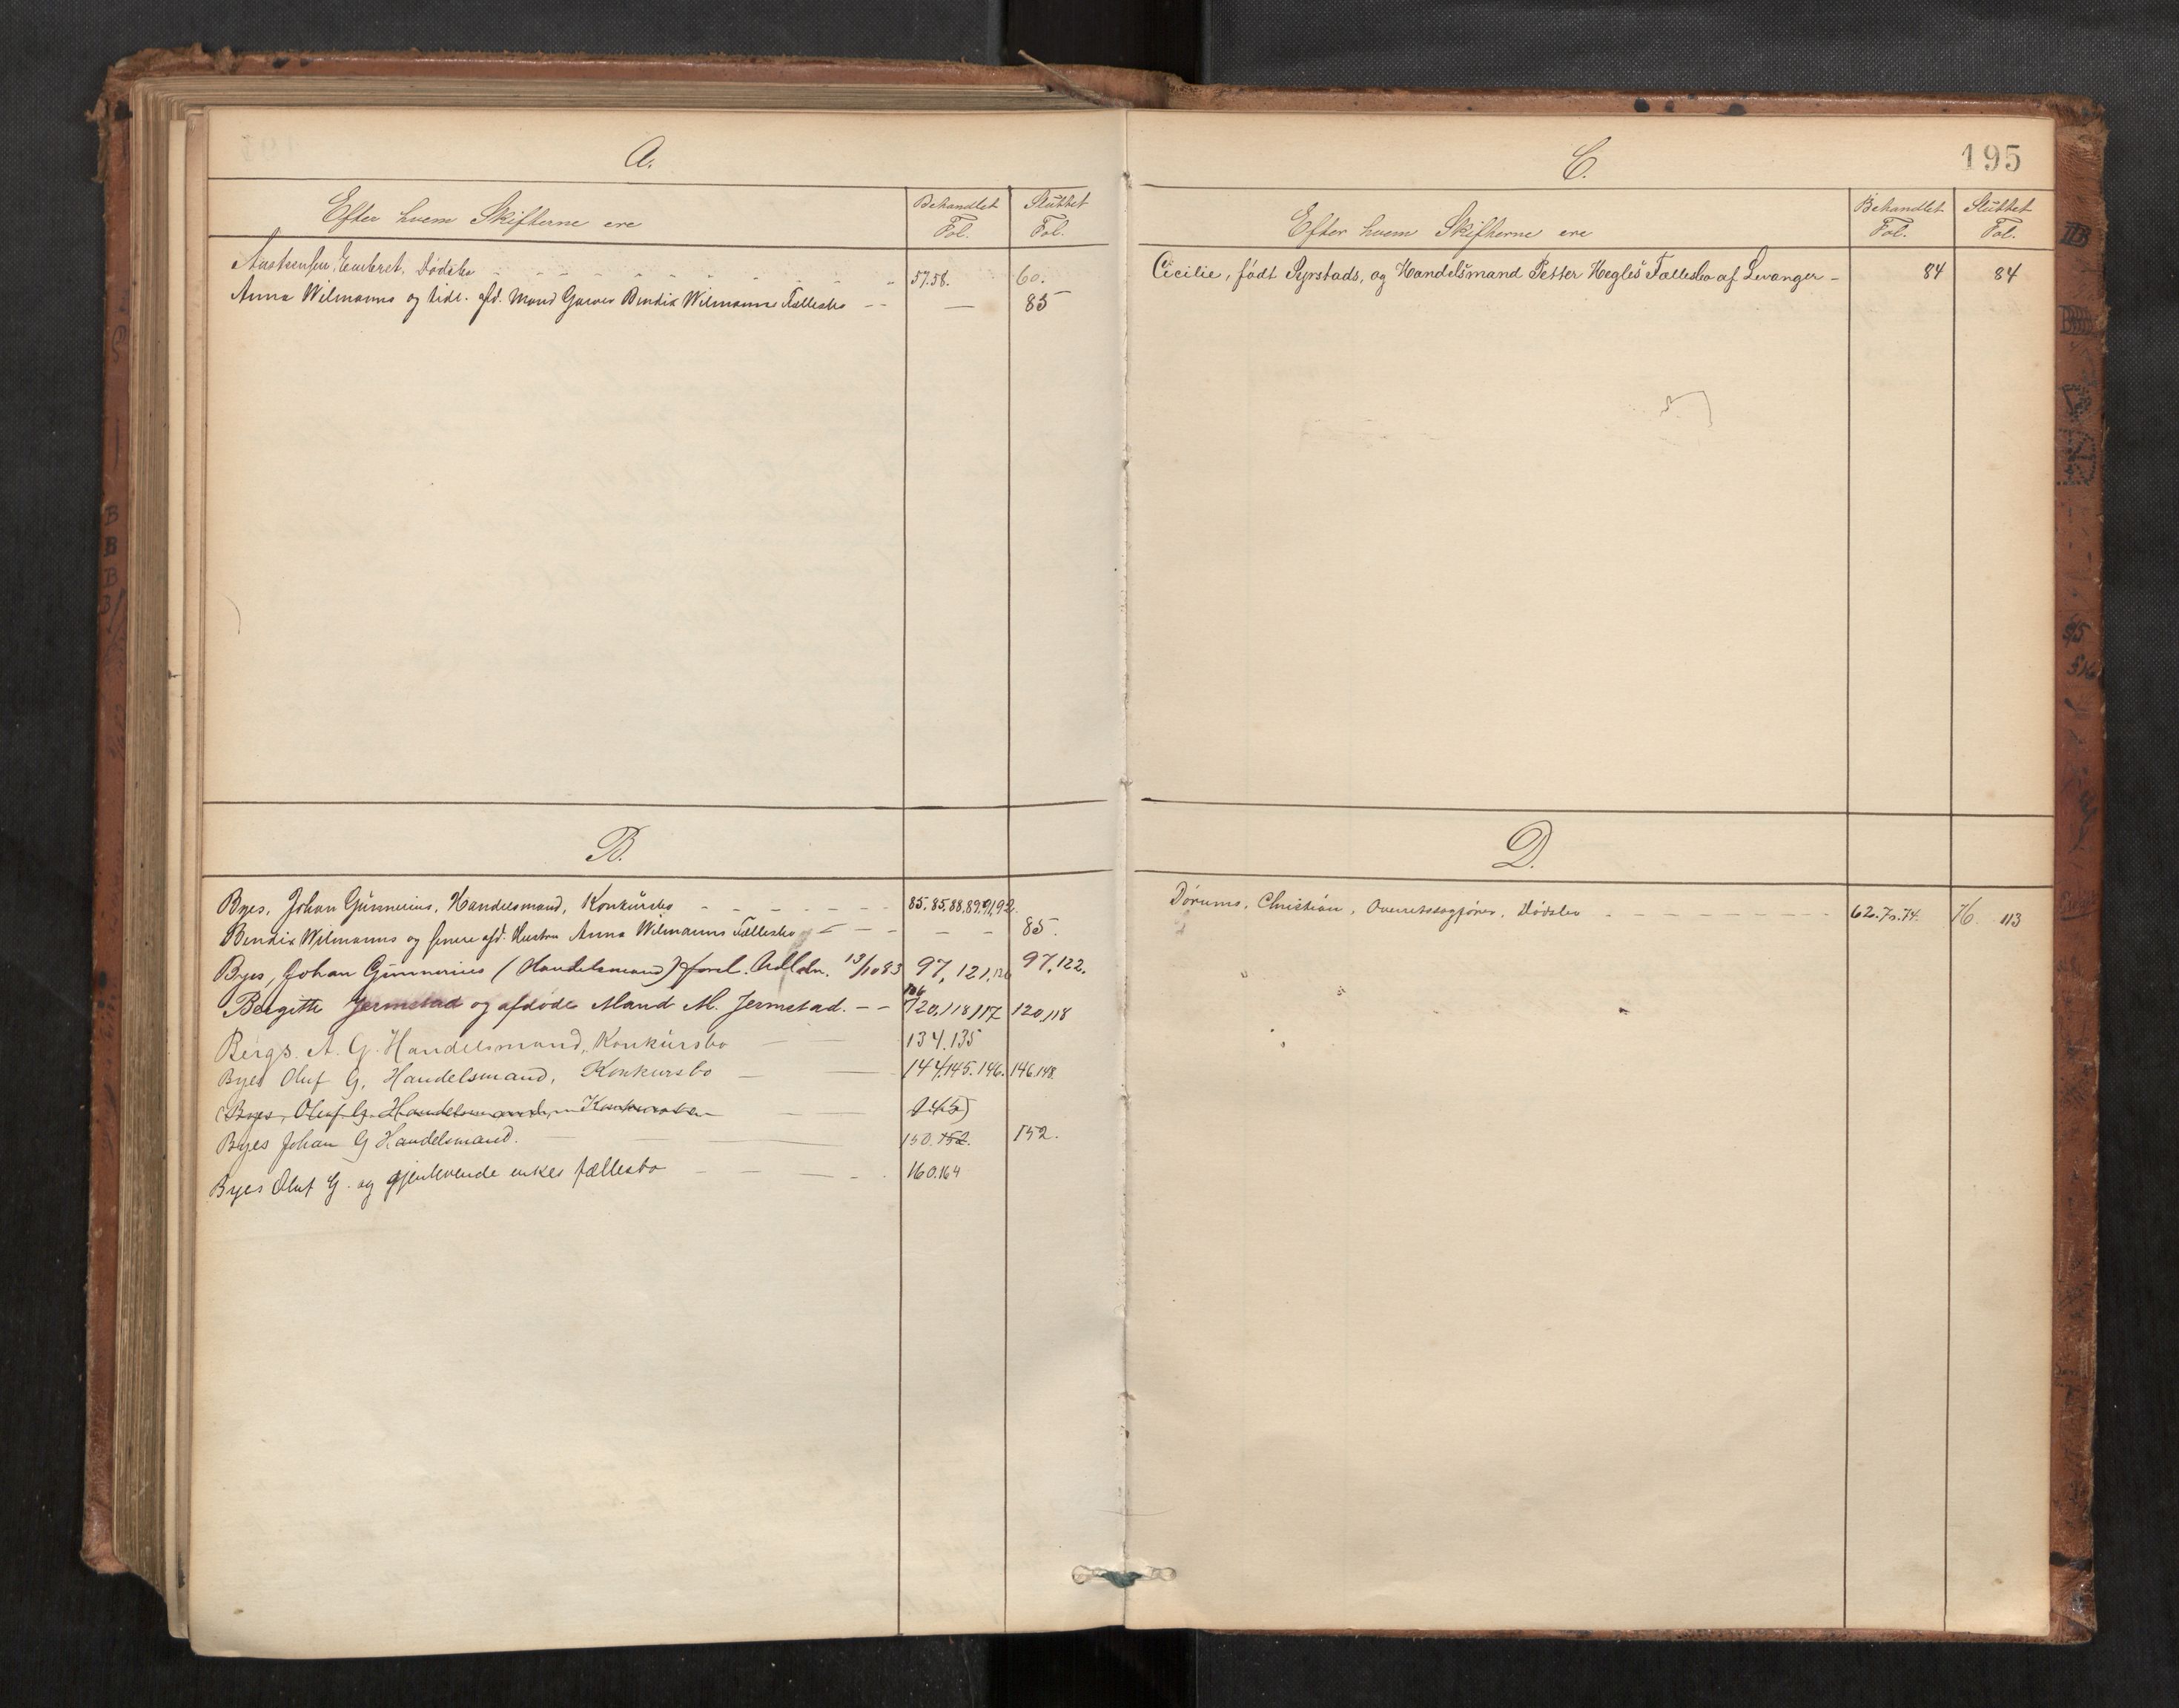 A.
Efter hvem Skifterne ere Behandlet Fol. Sluttet Fol.
Dødsbo 57.58. 60.
Anna Wilmanns og tidl. afd. Mand Garver Bendix Wilmanns Fællesbo - - — 85
B.
Byes, Johan Günnerius, Handelsmand, Konkürsbo 85.85.88.89.91,92.
Bendix Wilmanns og senere afd. Hustru Anna Wilmanns Fællesbo - - - 85.
Byes, Johan Günnerius (Handelsmand) 13/10 83 97, 121, 97,122.
Bergitte Jermstad og afdøde Mand M. Jermstad. - - 106 120,118,117 120,118
Bergs. A. G. Handelsmand, Konkürsbo 134.135
Byes Oluf G, Handelsmand, Konkursbo 144.145.146. 146.148.
(Byes, Oluf G. Handelsmand, Konkursbo 145)
Byes Johan G Handelsmand. 150.152. 152.
Byes Oluf G. og gjenlevende enkes fællesbo 160.164
C.
195
Efter hvem Skifterne ere Behandlet Fol. Sluttet Fol.
Cecilie, født Pyrstads, og Handelsmand Petter Hegles Fællesbo af Levanger - 84 84
D.
Dørums, Christian, Overretssagfører, Dødsbo 62.73.74. 76. 113